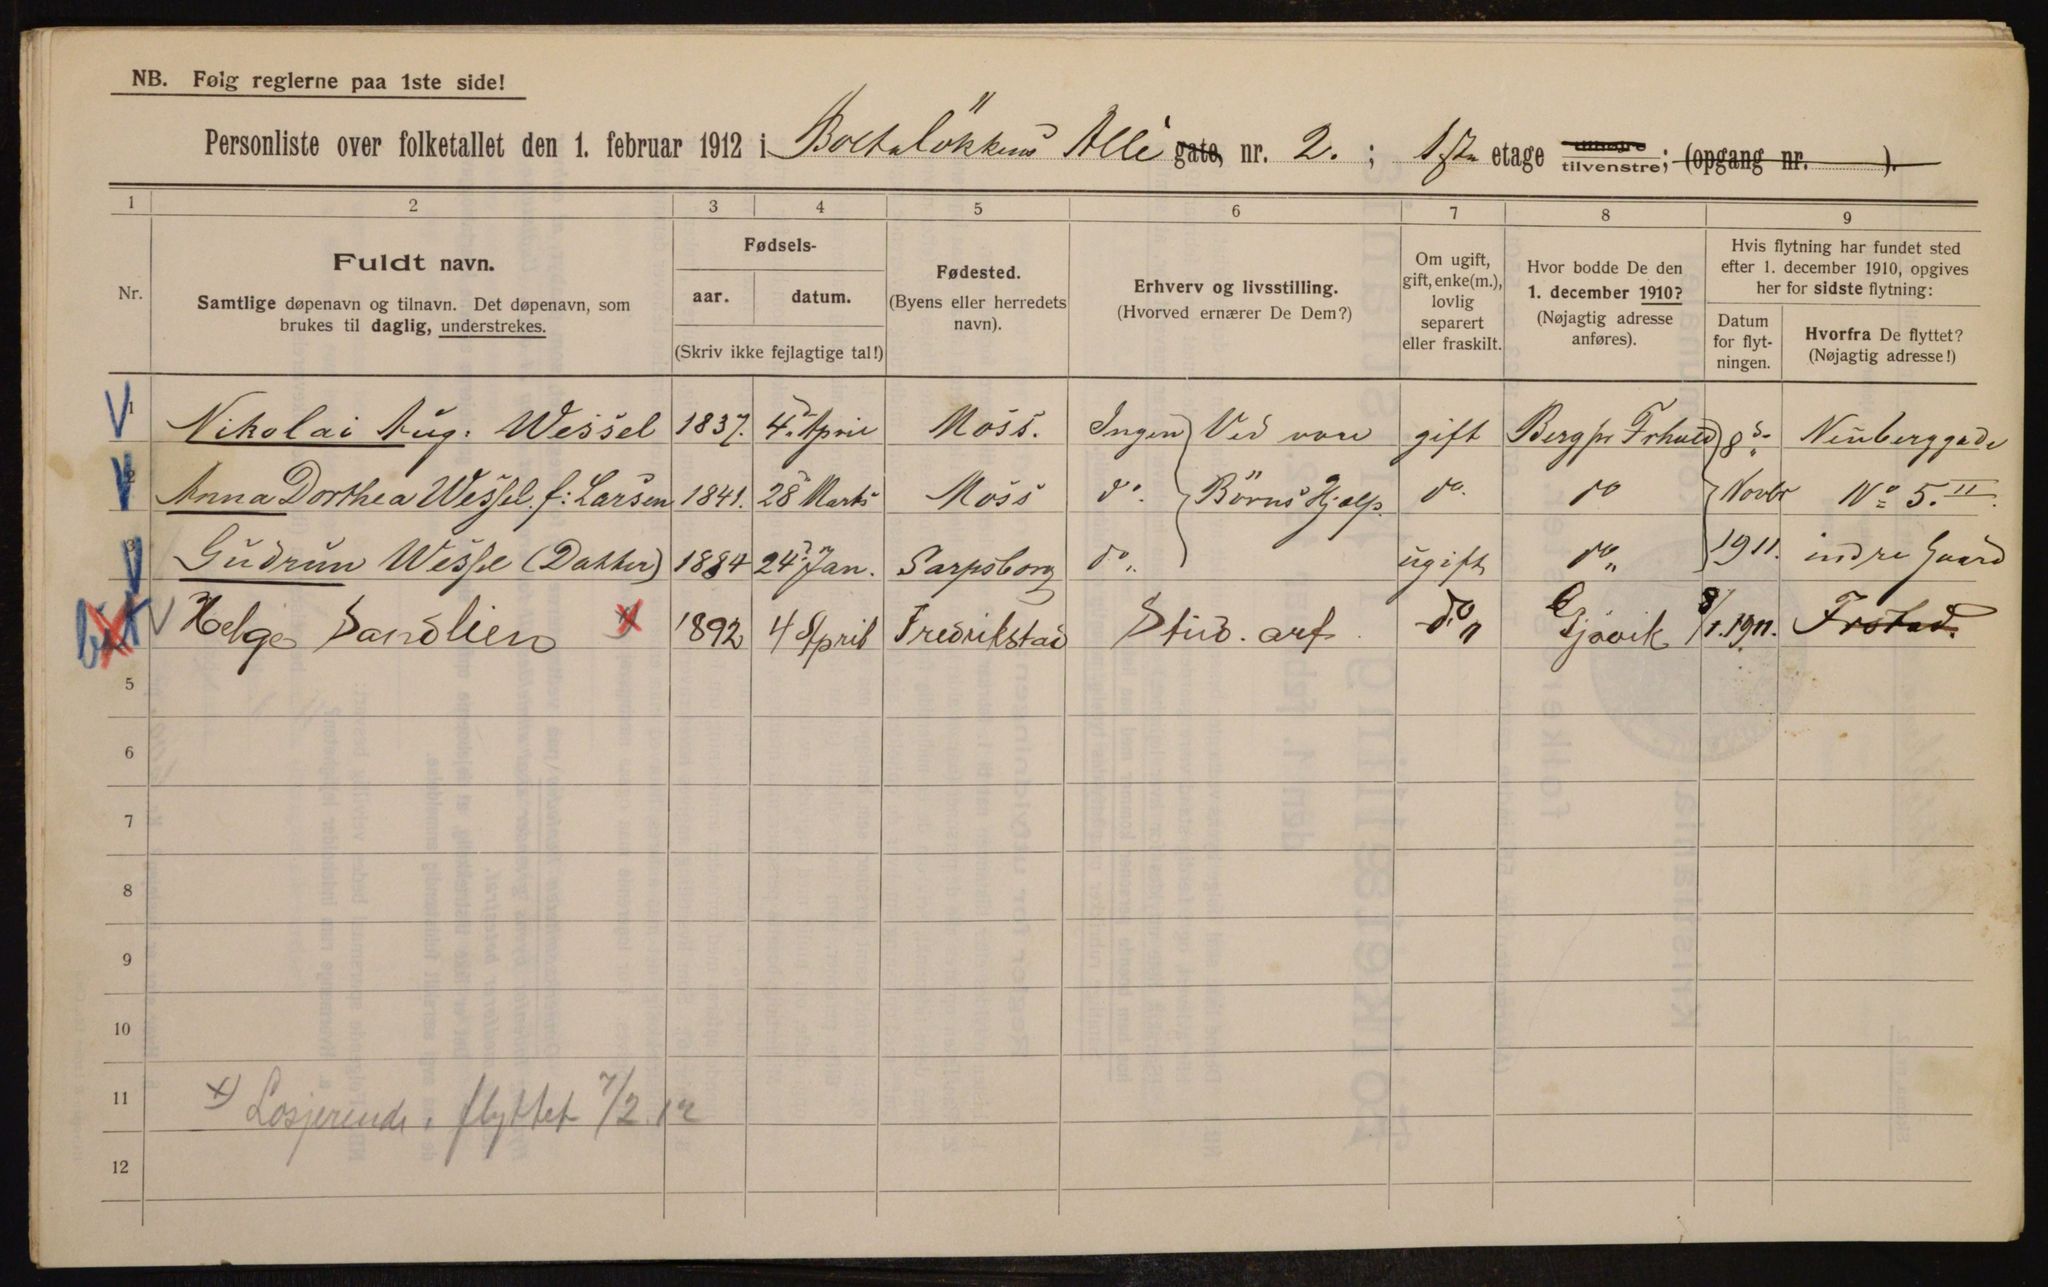 NB. Følg reglerne paa 1ste side!
Personliste over folketallet den 1. februar 1912 i Boltelökkens Allé gate, nr. 2. ; 1ste etage tilhøire tilvenstre; (opgang nr. ).
1 2 3 4 5 6 7 8 9
Nr.
Fuldt navn.
Samtlige døpenavn og tilnavn. Det døpenavn, som
brukes til daglig, understrekes.
Fødsels-
aar. datum.
(Skriv ikke fejlagtige tal!)
Fødested.
(Byens eller herredets
navn).
Erhverv og livsstilling.
(Hvorved ernærer De Dem?)
Om ugift,
gift, enke(m.),
lovlig
separert
eller fraskilt.
Hvor bodde De den
1. december 1910?
(Nøjagtig adresse
anføres).
Hvis flytning har fundet sted
efter 1. december 1910, opgives
her for sidste flytning:
Datum
for flyt-
ningen.
Hvorfra De flyttet?
(Nøjagtig adresse!)
1 Nikolai Aug. Wessel 1837. 4. April Moss. Ingen Ved vore gift 8de Neuberggade
2 Anna Dorthea Wessel f: Larsen 1841. 28 Marts Moss do. Börns Hjælp. do. do Novbr No 5. II
3 Gudrun Wessel (Datter) 1884 24 Jan. Sarpsborg do ugift do 1911. indre Gaard
Helge Sandlien x 1892 4 April Fredrikstad Stud. art. do Gjøvik 8/1.1911. Frstad.
5
6
7
8
9
10
11
x) Losjerende, flyttet 7/2.12
12